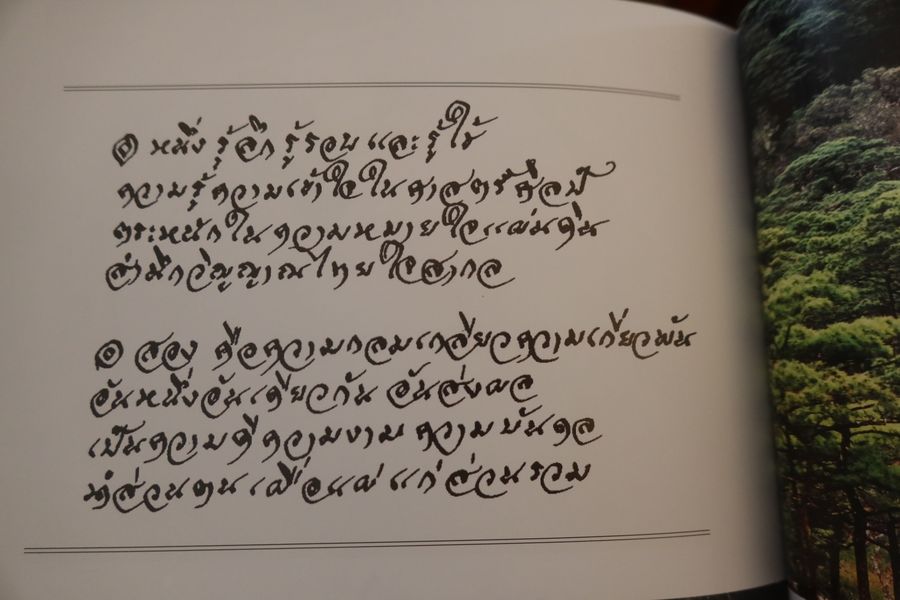 ๑ หนึ่ง รู้ลึก รู้รอบ และรู้ใช้
ความรู้ความเข้าใจในศาสตร์ศิลป์
ตระหนักในความหมายใจแผ่นดิน
สำนึกวิญญาณไทยใจสากล
๑ สอง คือความกลมเกลียวความเกี่ยวพัน
อันหนึ่งอันเดียวกัน อันส่งผล
เป็นความดีความงาม ความบันดล
ทำส่วนตน เผื่อแผ่ แก่ส่วนรวม